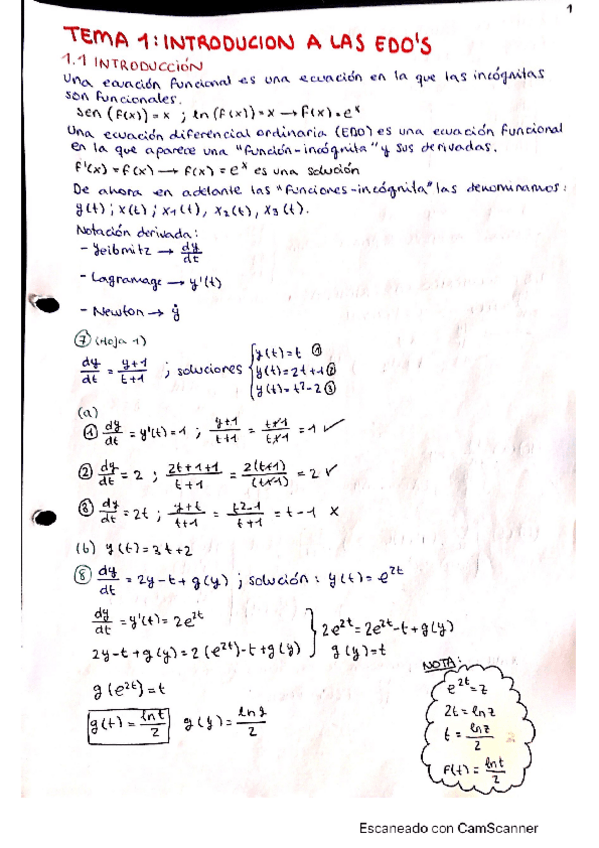 1
TEMA 1: INTRODUCION A LAS EDO'S
1.1 INTRODUCCIÓN
Una ecuación funcional es una ecuación en la que las incógnitas
son funcionales.
sen (f(x)) = x ; ln (f(x)) = x → f(x) = e^x
Una ecuación diferencial ordinaria (EDO) es una ecuación funcional
en la que aparece una "función-incógnita" y sus derivadas.
f'(x) = f(x) → f(x) = e^x es una solución
De ahora en adelante las "funciones-incógnita" las denominamos:
y(t) ; x(t) ; x1(t), x2(t), x3(t).
Notación derivada:
- Leibnitz → dy/dt
- Lagramage → y'(t)
- Newton → ẏ
⑦ (Hoja 1)
dy/dt = y+1/t+1 ; soluciones { y(t) = t ①
y(t) = 2t+1 ②
y(t) = t²-2 ③
(a)
① dy/dt = y'(t) = 1 ; y+1/t+1 = t+1/t+1 = 1 ✓
② dy/dt = 2 ; 2t+1+1/t+1 = 2(t+1)/(t+1) = 2 ✓
③ dy/dt = 2t ; t+1 = t²-1/t+1 = t-1 x
(b) y(t) = 3t+2
⑧ dy/dt = 2y-t+g(y) ; solución: y(t) = e^2t
dy/dt = y'(t) = 2e^2t
2y-t+g(y) = 2(e^2t)-t+g(y) } 2e^2t = 2e^2t-t+g(y)
g(y) = t
g(e^2t) = t
g(t) = ln t/2 g(y) = ln y/2
NOTA:
e^2t = z
2t = ln z
t = ln z/2
f(t) = ln t/2
Escaneado con CamScanner